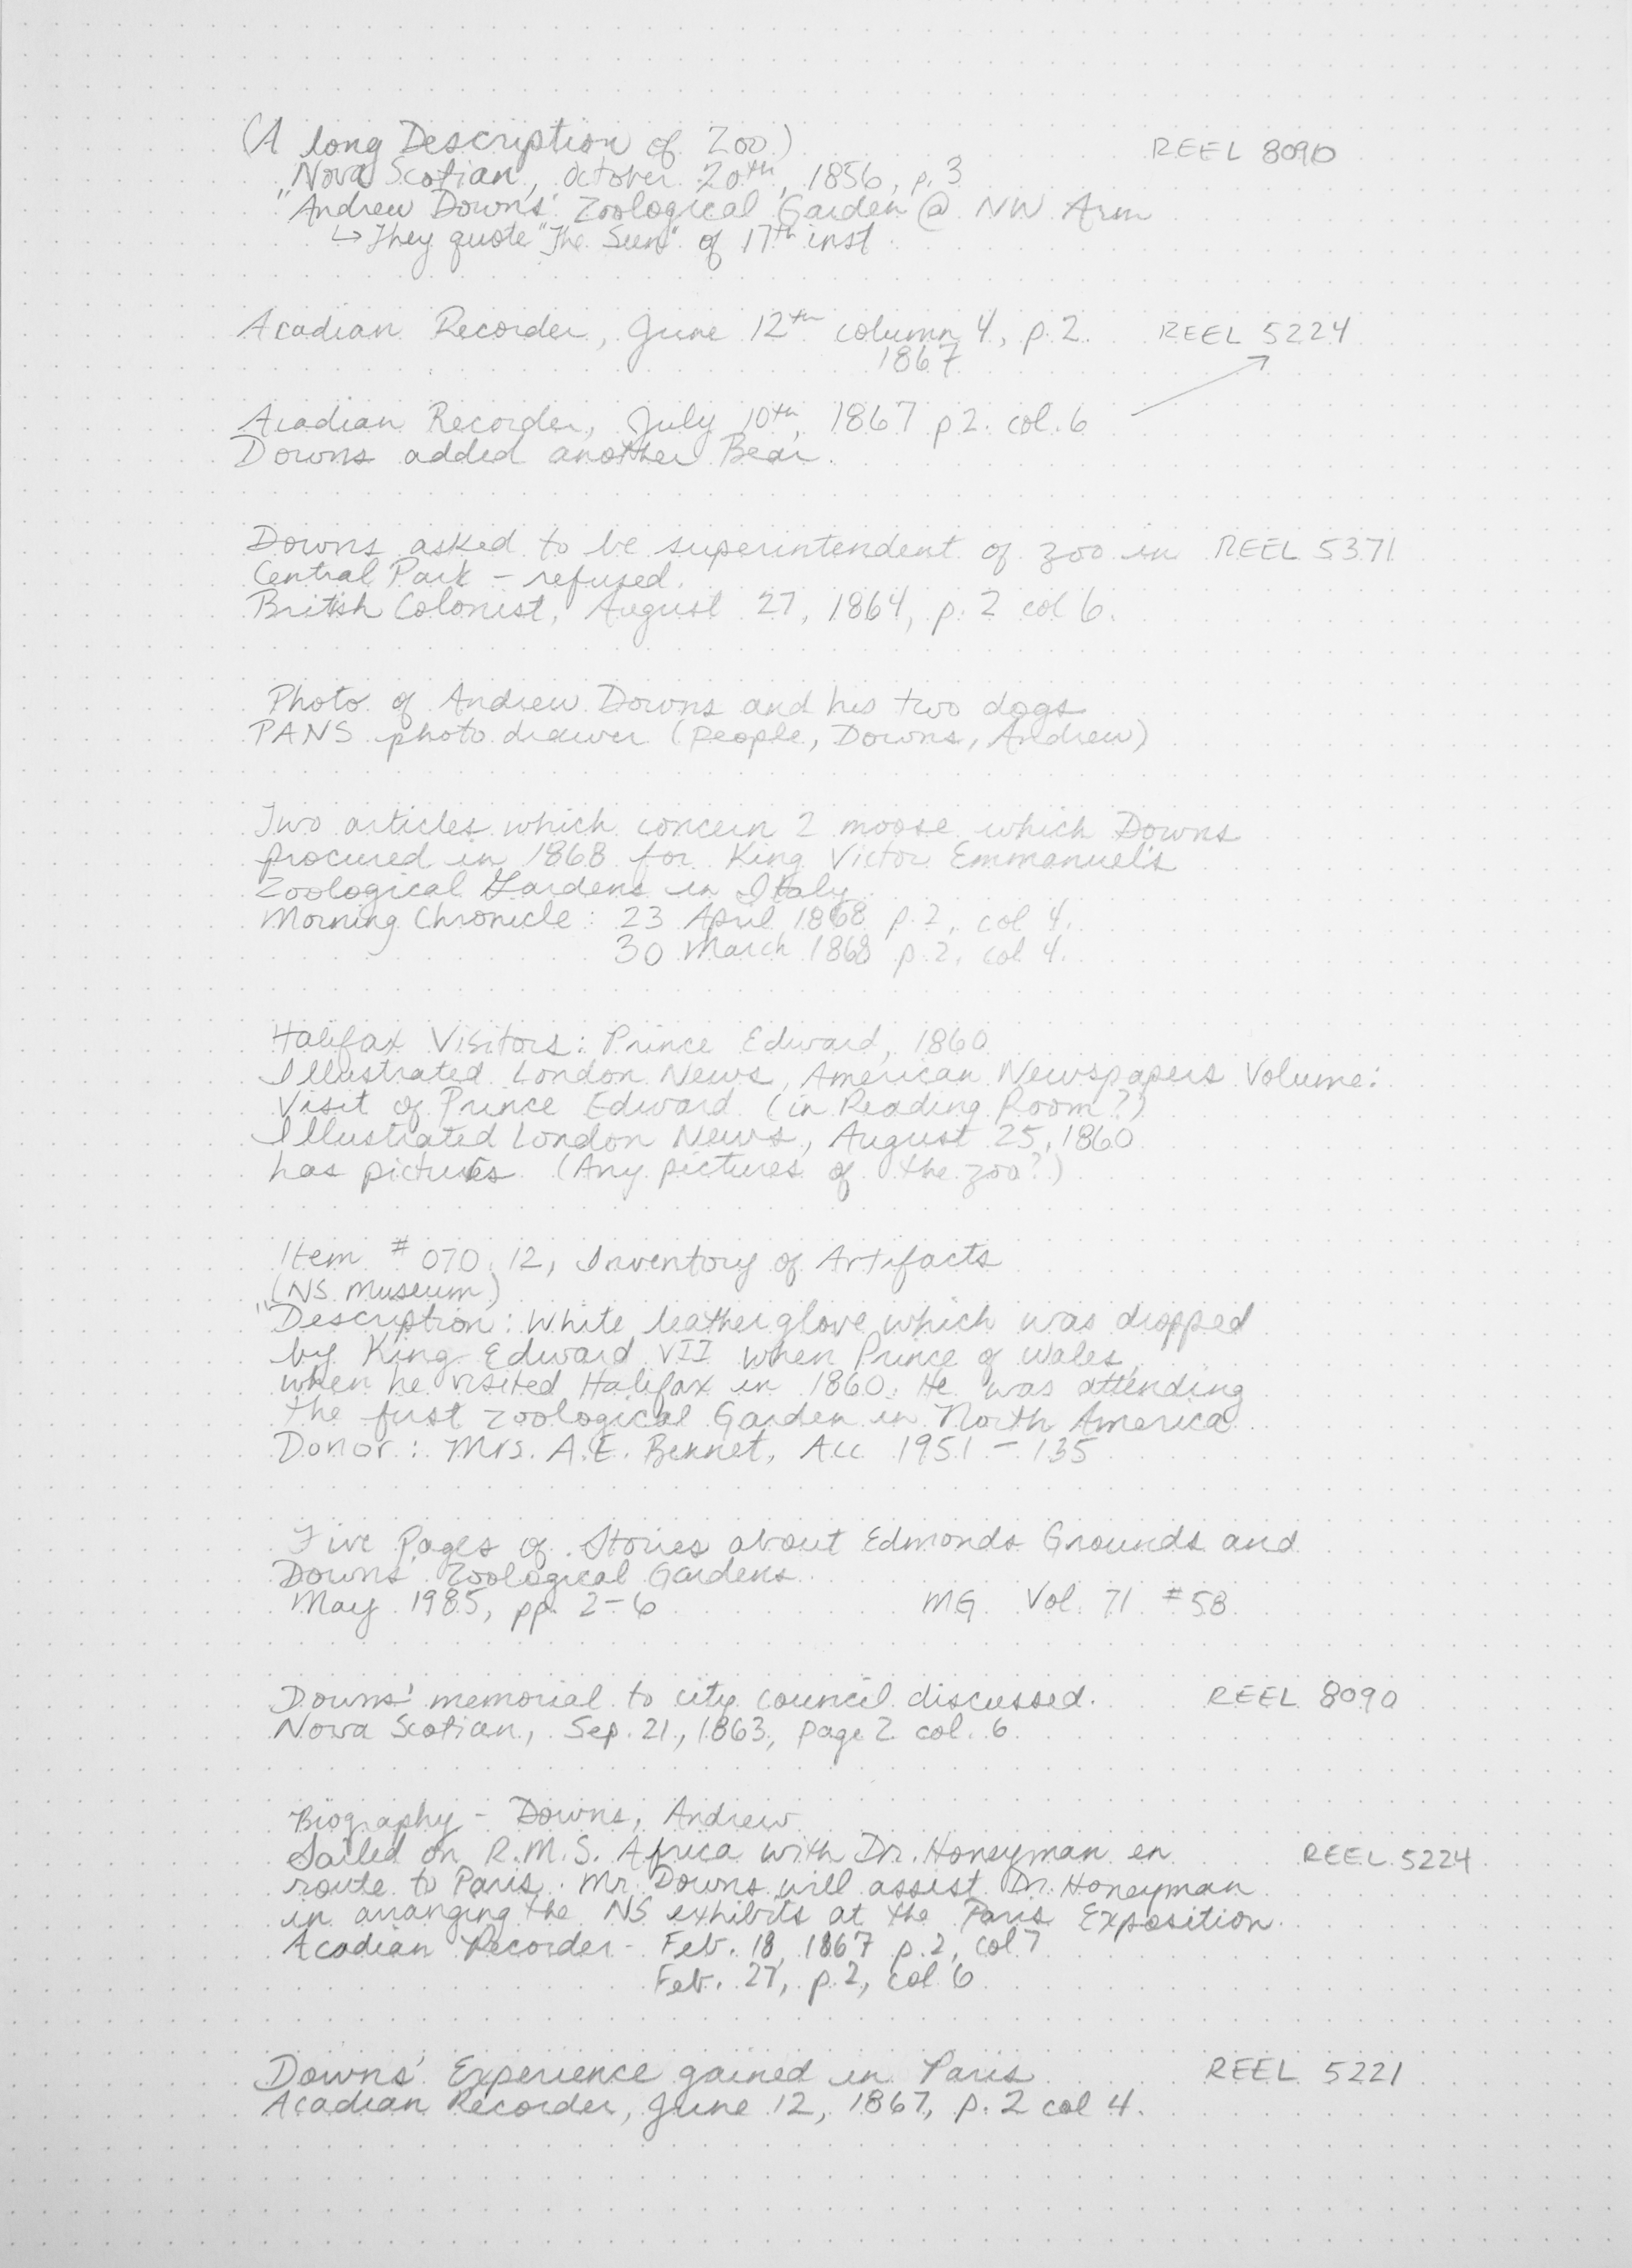 (A long Description of Zoo) REEL 8090
Nova Scotian, October 20th, 1856, p. 3
"Andrew Downs' Zoological Garden @ NW Arm
↳ They quote "The Sun" of 17th inst
Acadian Recorder, June 12th column 4, p. 2. REEL 5224
1867
Acadian Recorder, July 10th, 1867 p2. col. 6
Downs added another Bear.
Downs asked to be superintendent of zoo in REEL 5371
Central Park - refused.
British Colonist, August 27, 1864, p. 2 col 6.
Photo of Andrew Downs and his two dogs
PANS photo drawer (People, Downs, Andrew)
Two articles which concern 2 moose which Downs
procured in 1868 for King Victor Emmanuel's
Zoological Gardens in Italy
Morning Chronicle: 23 April 1868 p. 2, col 4.
30 March 1868 p. 2, col 4.
Halifax Visitors: Prince Edward, 1860
Illustrated London News, American Newspapers Volume:
Visit of Prince Edward (in Reading Room?)
Illustrated London News, August 25, 1860
has pictures (Any pictures of the zoo?)
Item # 070.12, Inventory of Artifacts
(NS Museum)
"Description: White leather glove which was dropped
by King Edward VII when Prince of Wales,
when he visited Halifax in 1860. He was attending
the first zoological Garden in North America
Donor: Mrs. A.E. Bennet, Acc 1951-135
Five Pages of Stories about Edmonds Grounds and
Downs Zoological Gardens
May 1985, pp. 2-6 MG Vol. 71 #58
Downs' memorial to city council discussed. REEL 8090
Nova Scotian, Sep. 21, 1863, page 2 col. 6
Biography - Downs, Andrew
Sailed on R.M.S. Africa with Dr. Honeyman en REEL 5224
route to Paris. Mr Downs will assist Dr. Honeyman
in arranging the NS exhibits at the Paris Exposition.
Acadian Recorder - Feb. 18, 1867 p. 2, col 7
Feb. 27, p. 2, col 6
Downs' Experience gained in Paris REEL 5221
Acadian Recorder, June 12, 1867, p. 2 col 4.